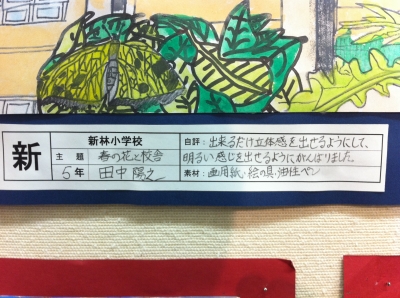 新
新林小学校
主題 春の花と校舎
5年 田中 陽之
自評：出来るだけ立体感を出せるようにして、
明るい感じを出せるようにがんばりました。
素材：画用紙、絵の具、油性ペン